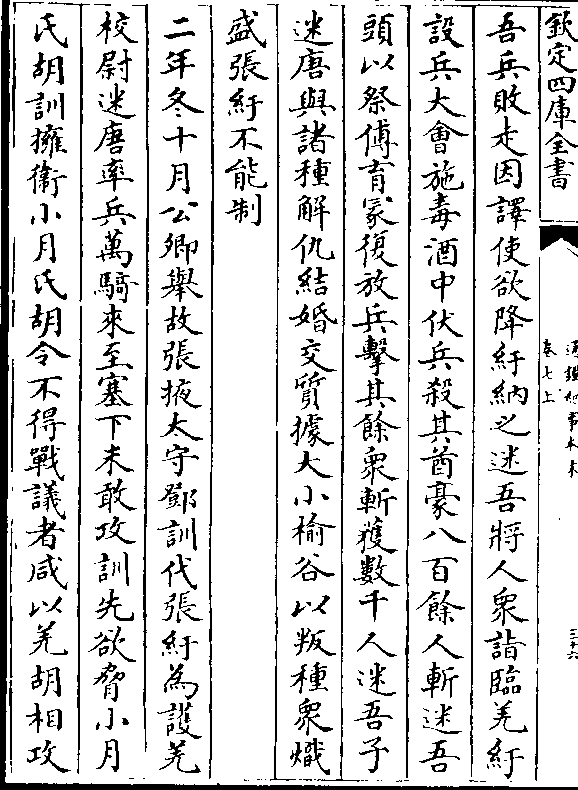 欽定四庫全書
通鑑紀事本末
卷七上
三十六
吾兵敗走因譯使欲降紆納之迷吾將人衆詣臨羌紆
設兵大會施毒酒中伏兵殺其酋豪八百餘人斬迷吾
頭以祭傅育冡復放兵擊其餘衆斬獲數千人迷吾子
迷唐與諸種解仇結婚交質據大小榆谷以叛種衆熾
盛張紆不能制
二年冬十月公卿舉故張掖太守鄧訓代張紆為護羌
校尉迷唐率兵萬騎來至塞下未敢攻訓先欲脅小月
氏胡訓擁衛小月氏胡令不得戰議者咸以羌胡相攻